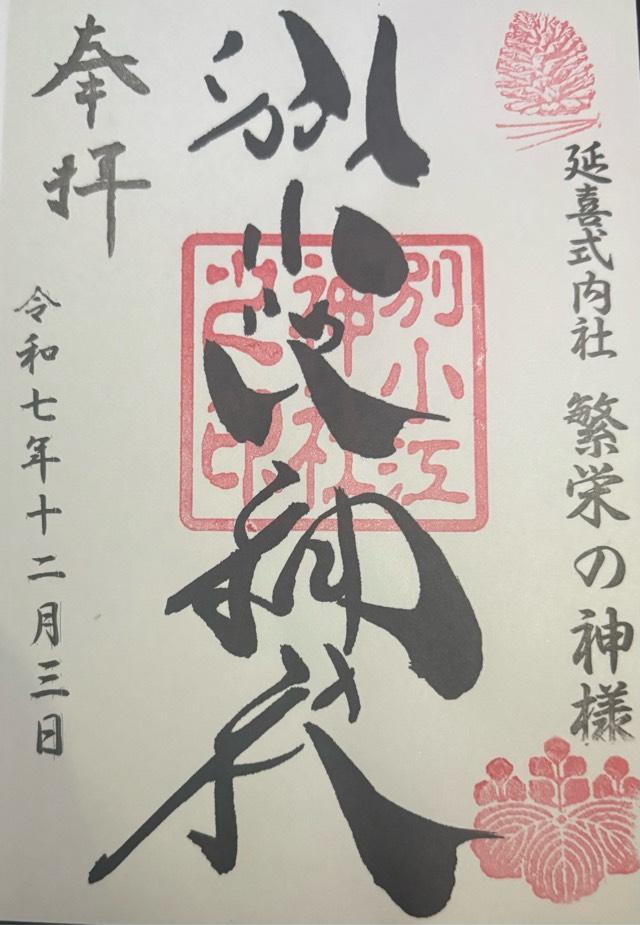 延喜式内社 繁栄の神様
別小江神社
別小江
神社
之印
奉拝
令和七年十二月三日